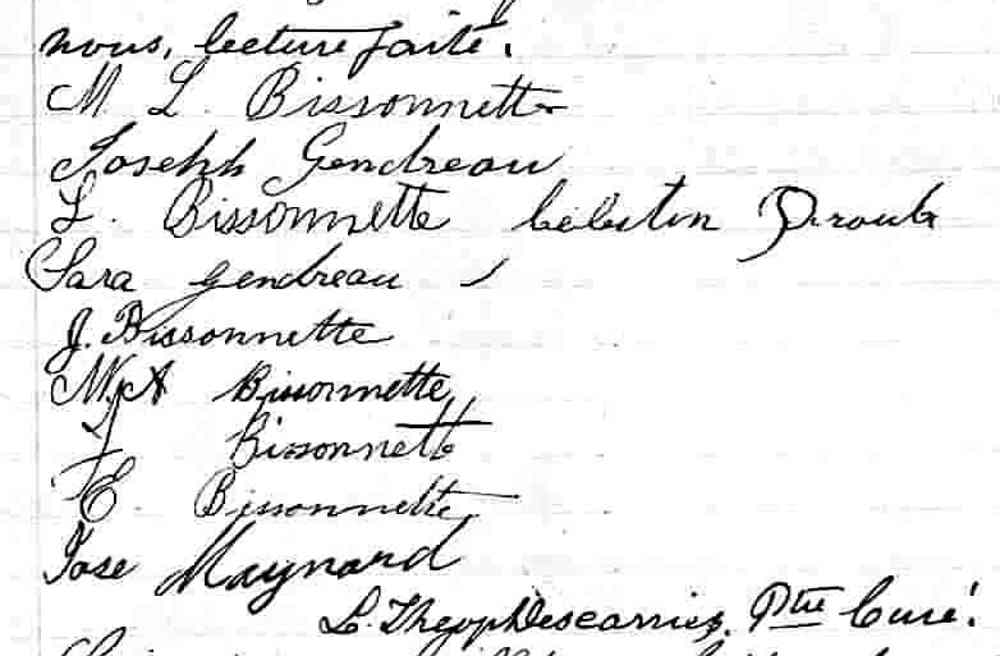 nous, lecture faite.
M L. Bissonnette
Joseph Gendreau
L. Bissonnette Célestin Proulx
Sara gendreau
J. Bissonnette
M. A Bissonnette
J Bissonnette
E. Bissonnette
Rose Maynard
L. Théop Descarries, Ptre Curé.